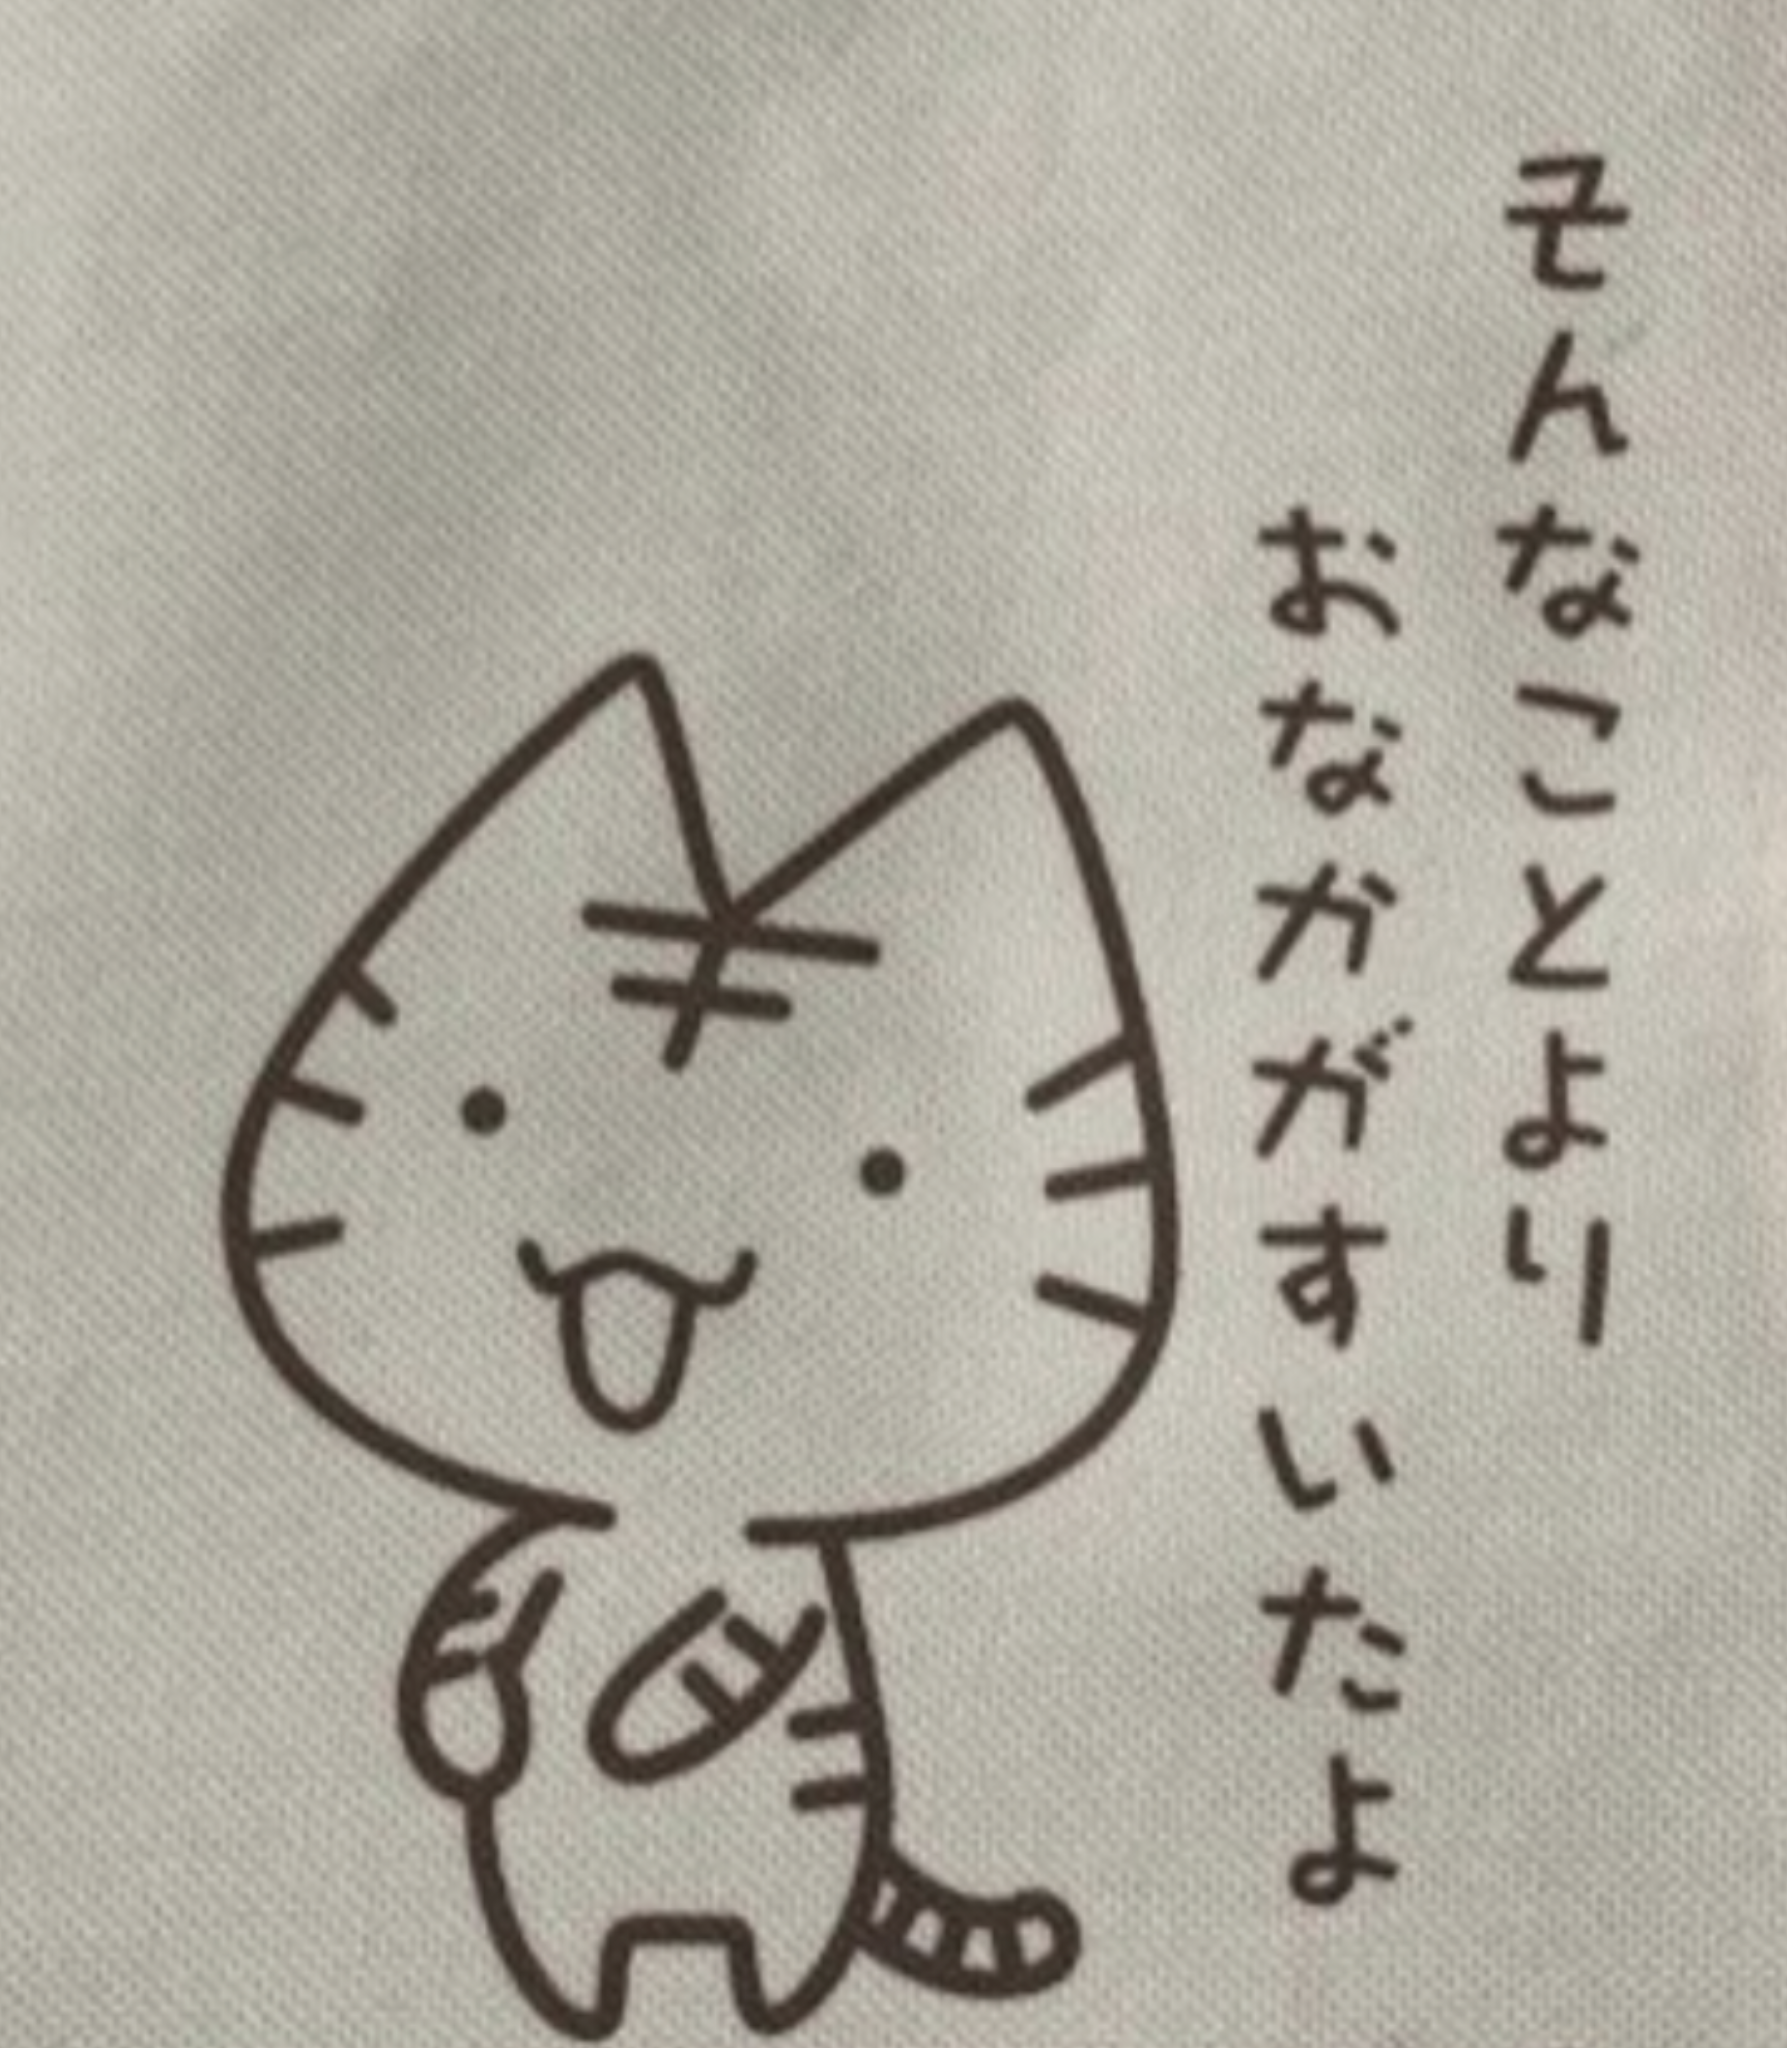 そんなことより
おなかがすいたよ